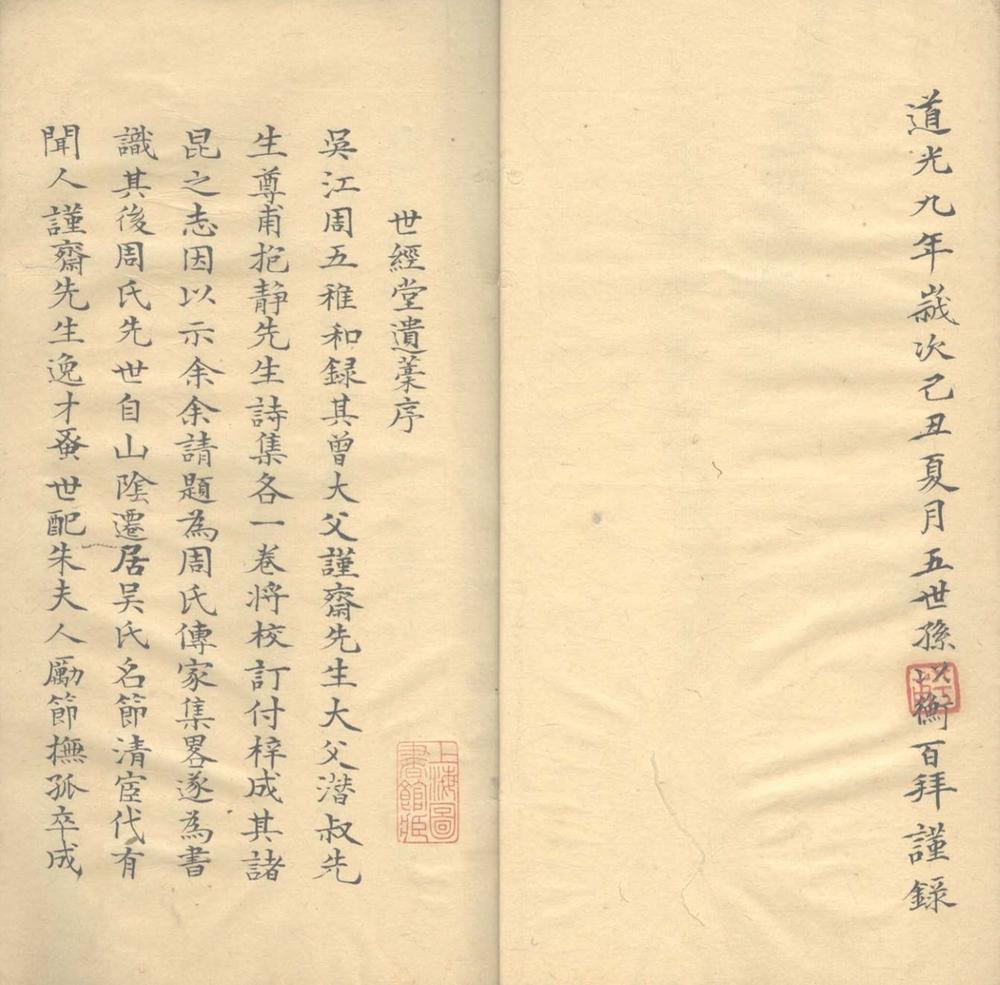 道光九年歲次己丑夏月五世孫以衡百拜謹錄
世經堂遺藁序
吳江周五稚和録其曾大父謹齋先生大父濳叔先
生尊甫抱静先生詩集各一卷將校訂付梓成其諸
昆之志因以示余余請題為周氏傳家集畧遂為書
識其後周氏先世自山陰遷居吴氏名節清宦代有
聞人謹齋先生逸才蚤世配朱夫人勵節撫孤卒成
上海圖
書館藏